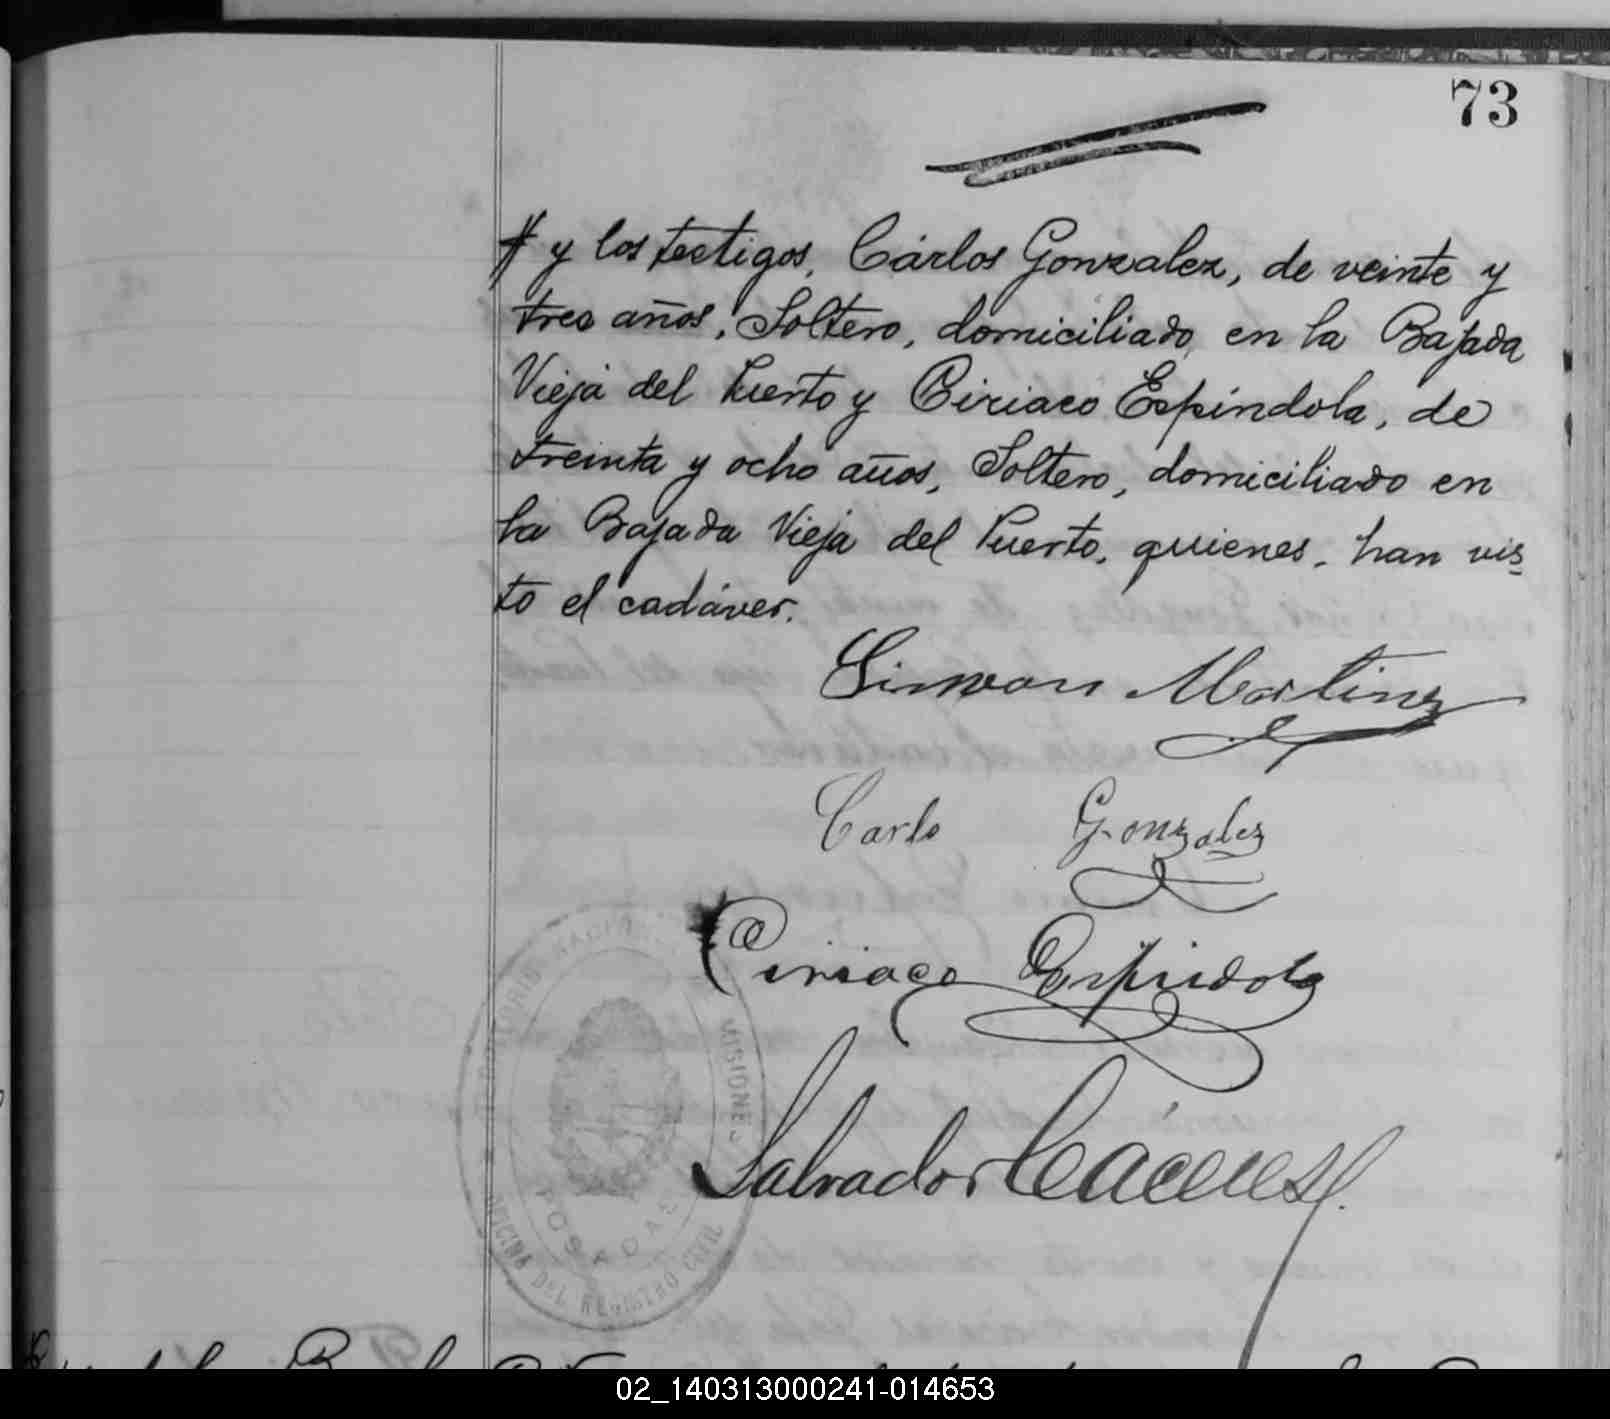 73
y los testigos, Cárlos Gonzalez, de veinte y
tres años, Soltero, domiciliado en la Bajada
Vieja del Puerto y Ciriaco Espíndola, de
treinta y ocho años, Soltero, domiciliado en
la Bajada Vieja del Puerto, quienes, han vis
to el cadáver.
Simon Martinez
Carlo Gonzalez
Ciriaco Espindola
Salvador Cáceres
MISIONES
POSADAS
OFICINA DEL REGISTRO CIVIL
02_140313000241-014653